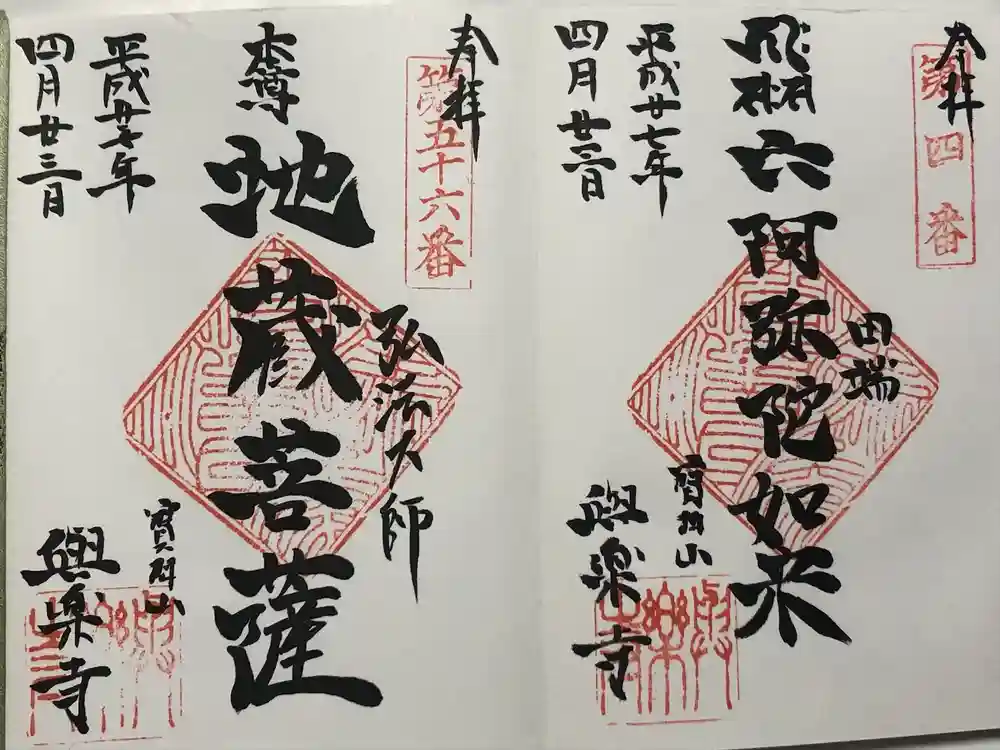 奉拝
第四番
田端
六阿弥陀如来
寳珠山
與楽寺
平成廿七年
四月廿三日
奉拝
第五十六番
弘法大師
本尊 地蔵菩薩
寳珠山
與楽寺
平成廿七年
四月廿三日